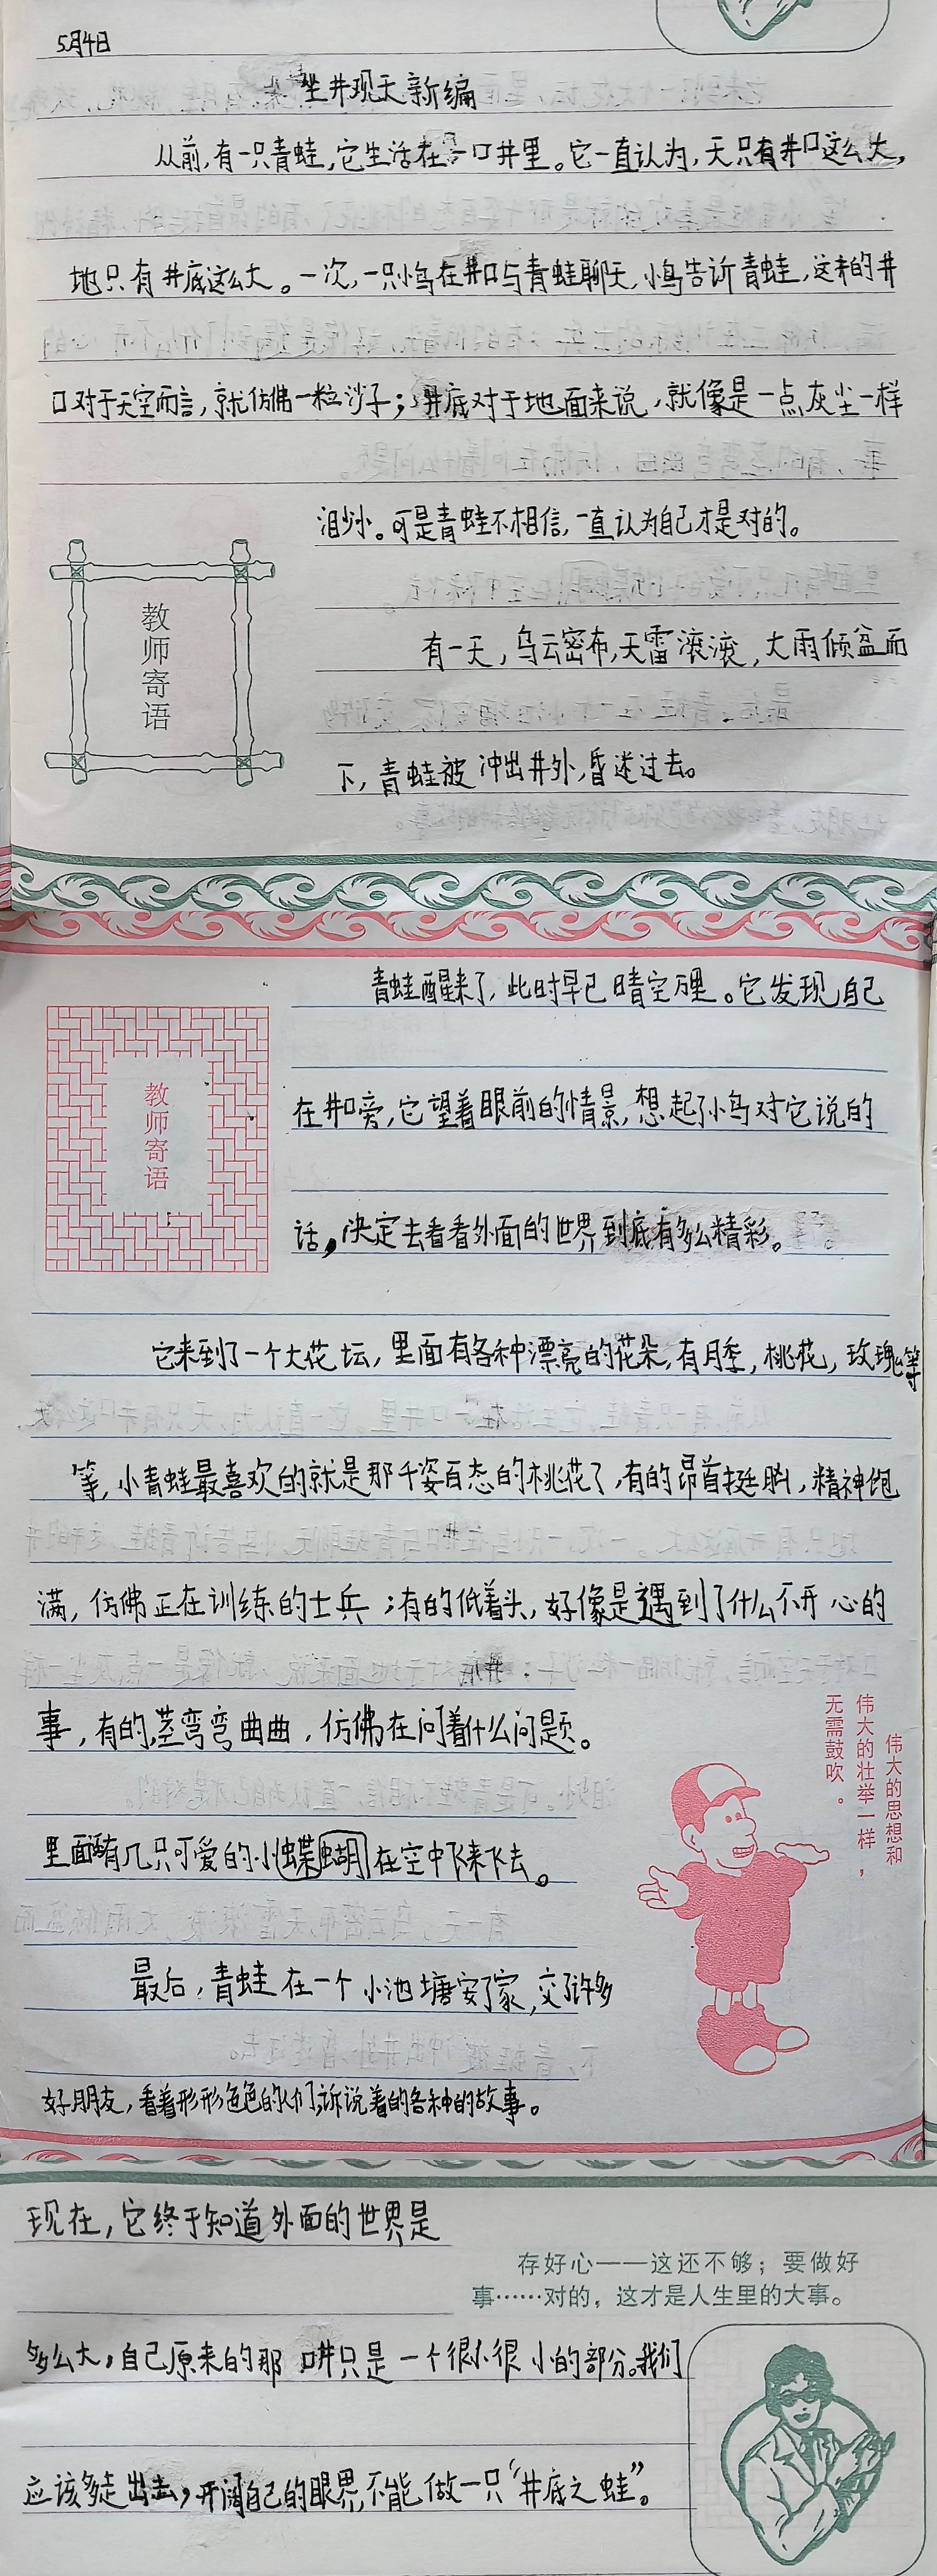 5月4日
坐井观天新编
从前,有一只青蛙,它生活在一口井里。它一直认为,天只有井口这么大,
地只有井底这么大。一次,一只小鸟在井口与青蛙聊天,小鸟告诉青蛙,这样的井
口对于天空而言,就仿佛一粒沙子;井底对于地面来说,就像是一点灰尘一样
渺小。可是青蛙不相信,一直认为自己才是对的。
有一天,乌云密布,天雷滚滚,大雨倾盆而
下,青蛙被冲出井外,昏迷过去。
教师寄语
青蛙醒来了,此时早已晴空万里。它发现自己
在井口旁,它望着眼前的情景,想起了小鸟对它说的
话,决定去看看外面的世界到底有多么精彩。
教师寄语
它来到了一个大花坛,里面有各种漂亮的花朵,有月季,桃花,玫瑰等
等,小青蛙最喜欢的就是那千姿百态的桃花了,有的昂首挺胸,精神饱
满,仿佛正在训练的士兵;有的低着头,好像是遇到了什么不开心的
事,有的茎弯弯曲曲,仿佛在问着什么问题。
里面有几只可爱的小蝶蝴在空中飞来飞去。
最后,青蛙在一个小池塘安了家,交了许多
好朋友,看着形形色色的人们,诉说着的各种的故事。
伟大的思想和
伟大的壮举一样,
无需鼓吹。
现在,它终于知道外面的世界是
多么大,自己原来的那口井只是一个很小很小的部分。我们
应该多走出去,开阔自己的眼界,不能做一只“井底之蛙”。
存好心——这还不够;要做好
事……对的,这才是人生里的大事。